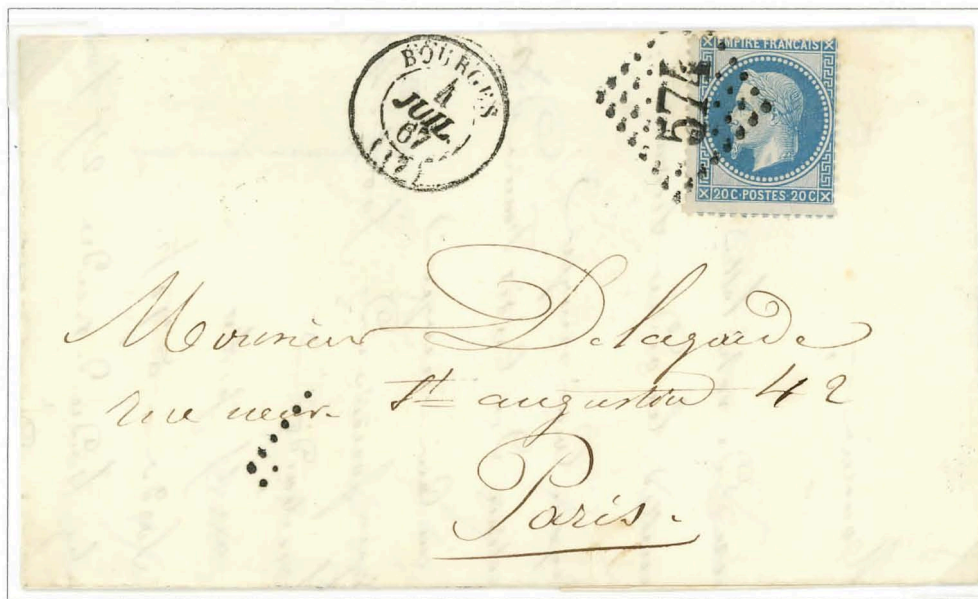 BOURGES
4
JUIL.
67
(17)
574
EMPIRE FRANCAIS
20C·POSTES·20C
Monsieur Delagarde
rue neuve St augustin 42
Paris.